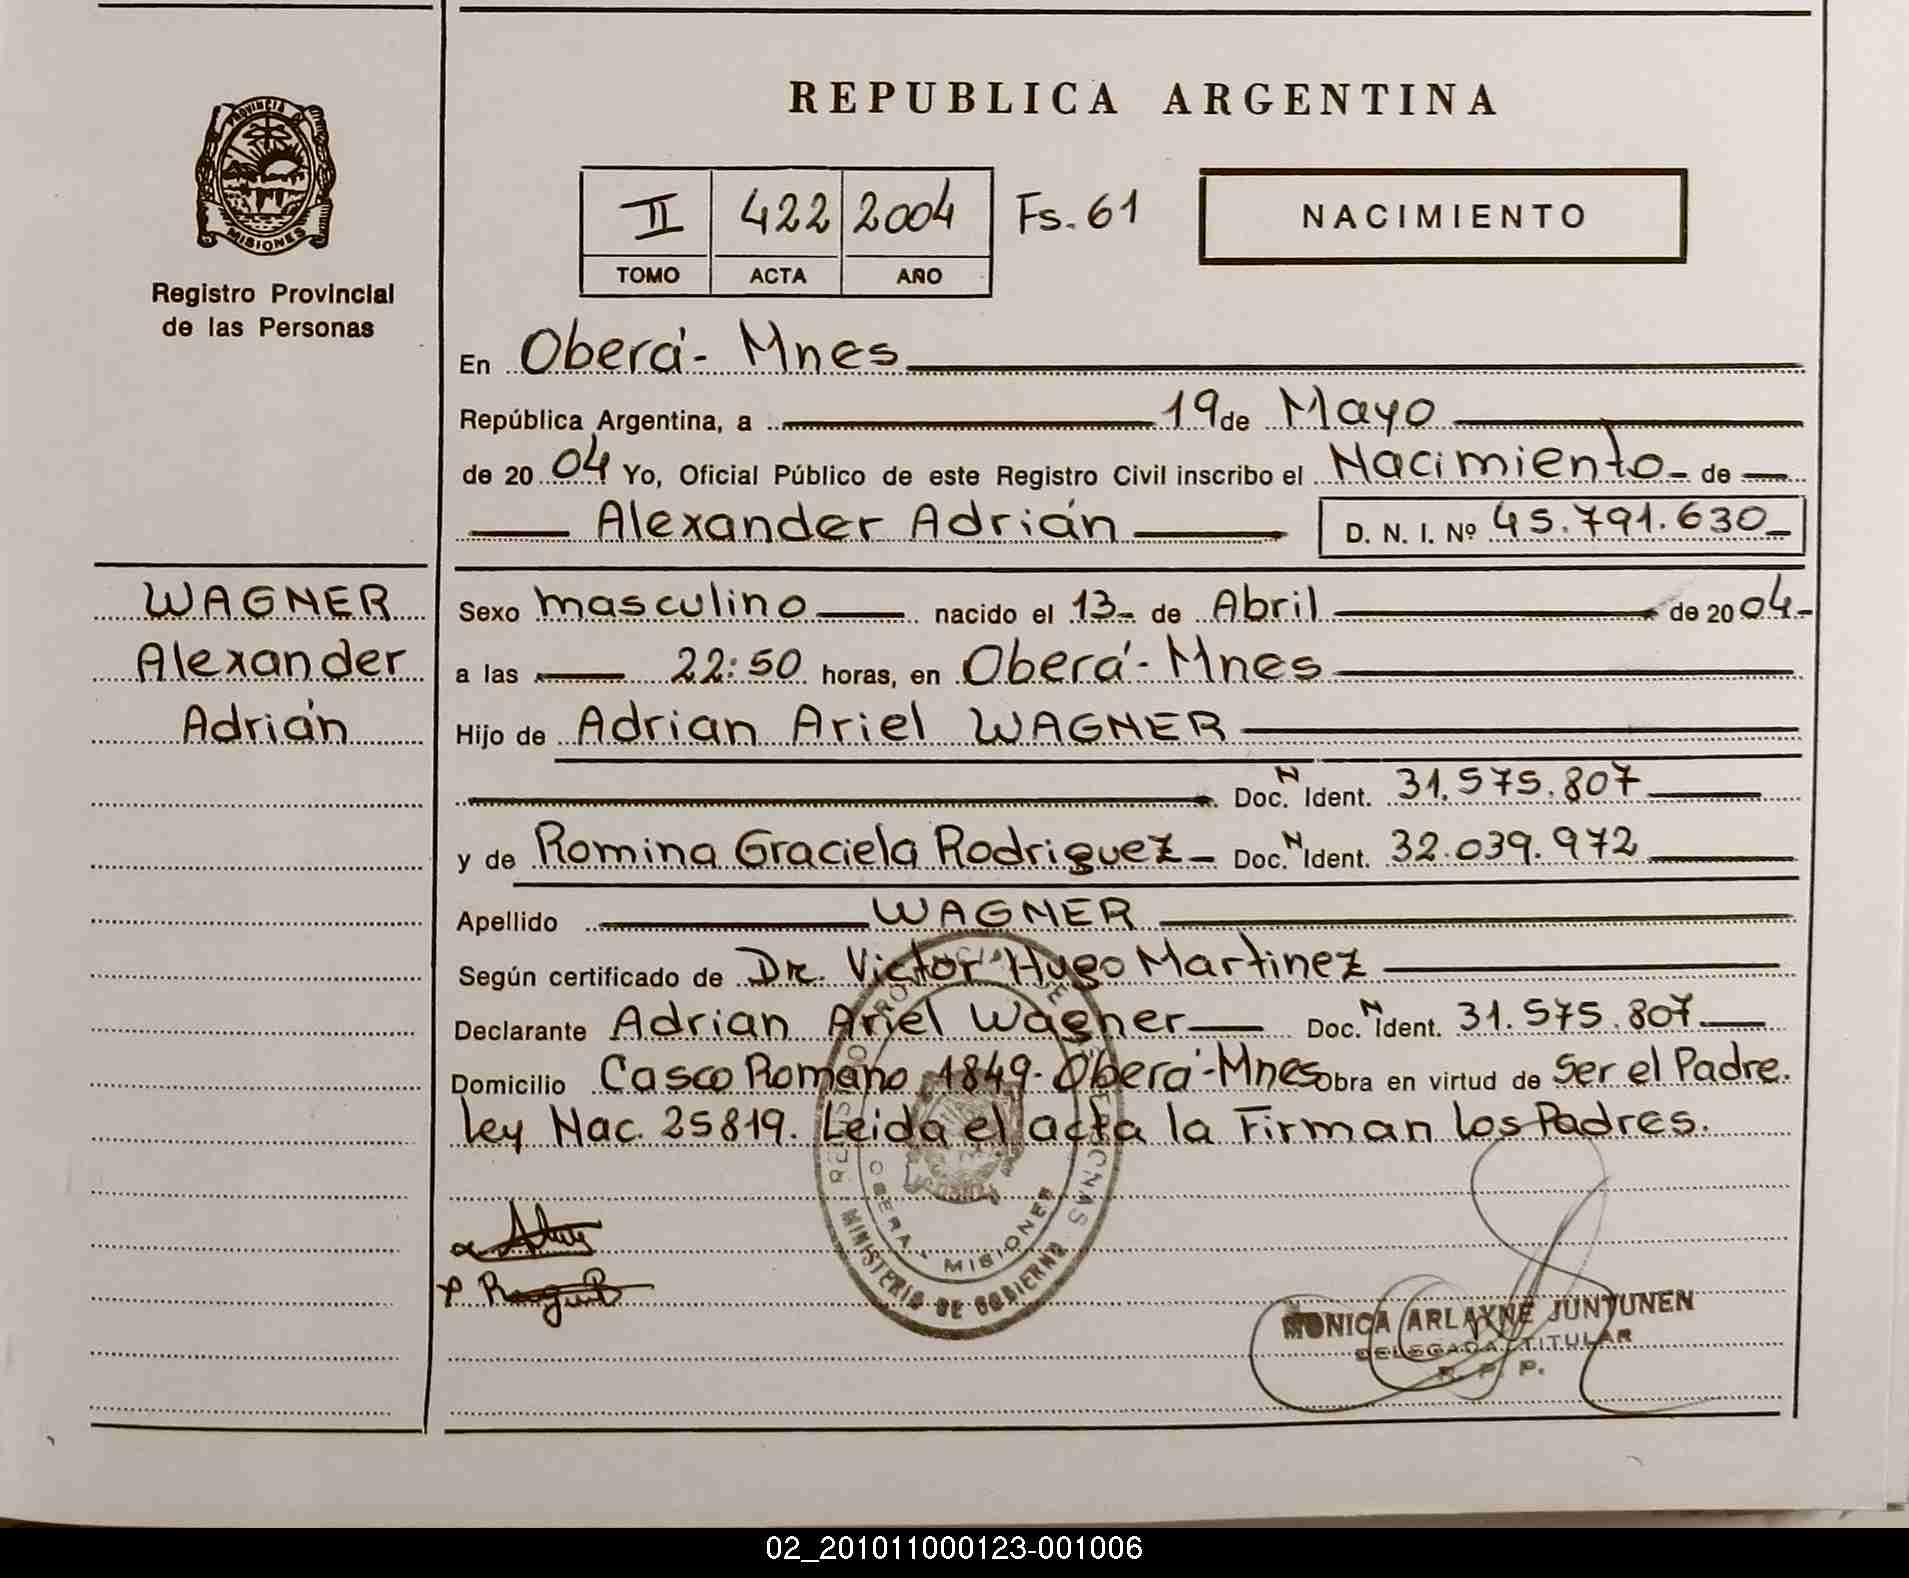 REPUBLICA ARGENTINA
PROVINCIA DE
MISIONES
Registro Provincial
de las Personas
II 422 2004 Fs. 61
TOMO ACTA AÑO
NACIMIENTO
En Oberá - Mnes
República Argentina, a 19 de Mayo
de 20 04 Yo, Oficial Público de este Registro Civil inscribo el Nacimiento - de
Alexander Adrián D. N. I. Nº 45.791.630
WAGNER
Alexander
Adrián
Sexo masculino nacido el 13 - de Abril de 20 04 -
a las 22:50 horas, en Oberá - Mnes
Hijo de Adrian Ariel WAGNER
Doc. N Ident. 31.575.807
y de Romina Graciela Rodriguez Doc. N Ident. 32.039.972
Apellido WAGNER
Según certificado de Dr. Victor Hugo Martinez
Declarante Adrian Ariel Wagner Doc. N Ident. 31.575.807
Domicilio Casco Romano 1849 - Oberá - Mnes Obra en virtud de Ser el Padre.
Ley Nac. 25819. Leida el acta la Firman los Padres.
OBERA - MISIONES
MINISTERIO DE GOBIERNO
MONICA ARLAYNE JUNTUNEN
DELEGADA TITULAR
R. P. P.
02_201011000123-001006